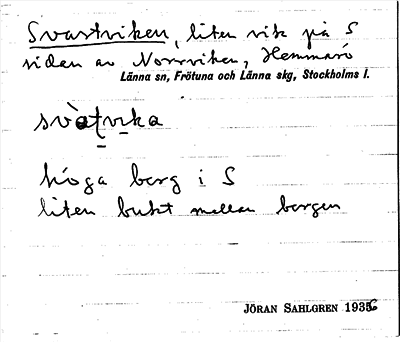 Svartviken, liten vik på S
sidan av Norrviken, Hemmarö
Länna sn, Frötuna och Länna skg, Stockholms l.
svàṭvi̱ka
höga berg i S
liten bukt mellan bergen
JÖRAN SAHLGREN 1936